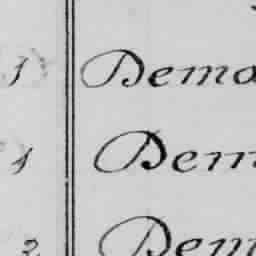 1 Demo
1 Dem
2 Dem